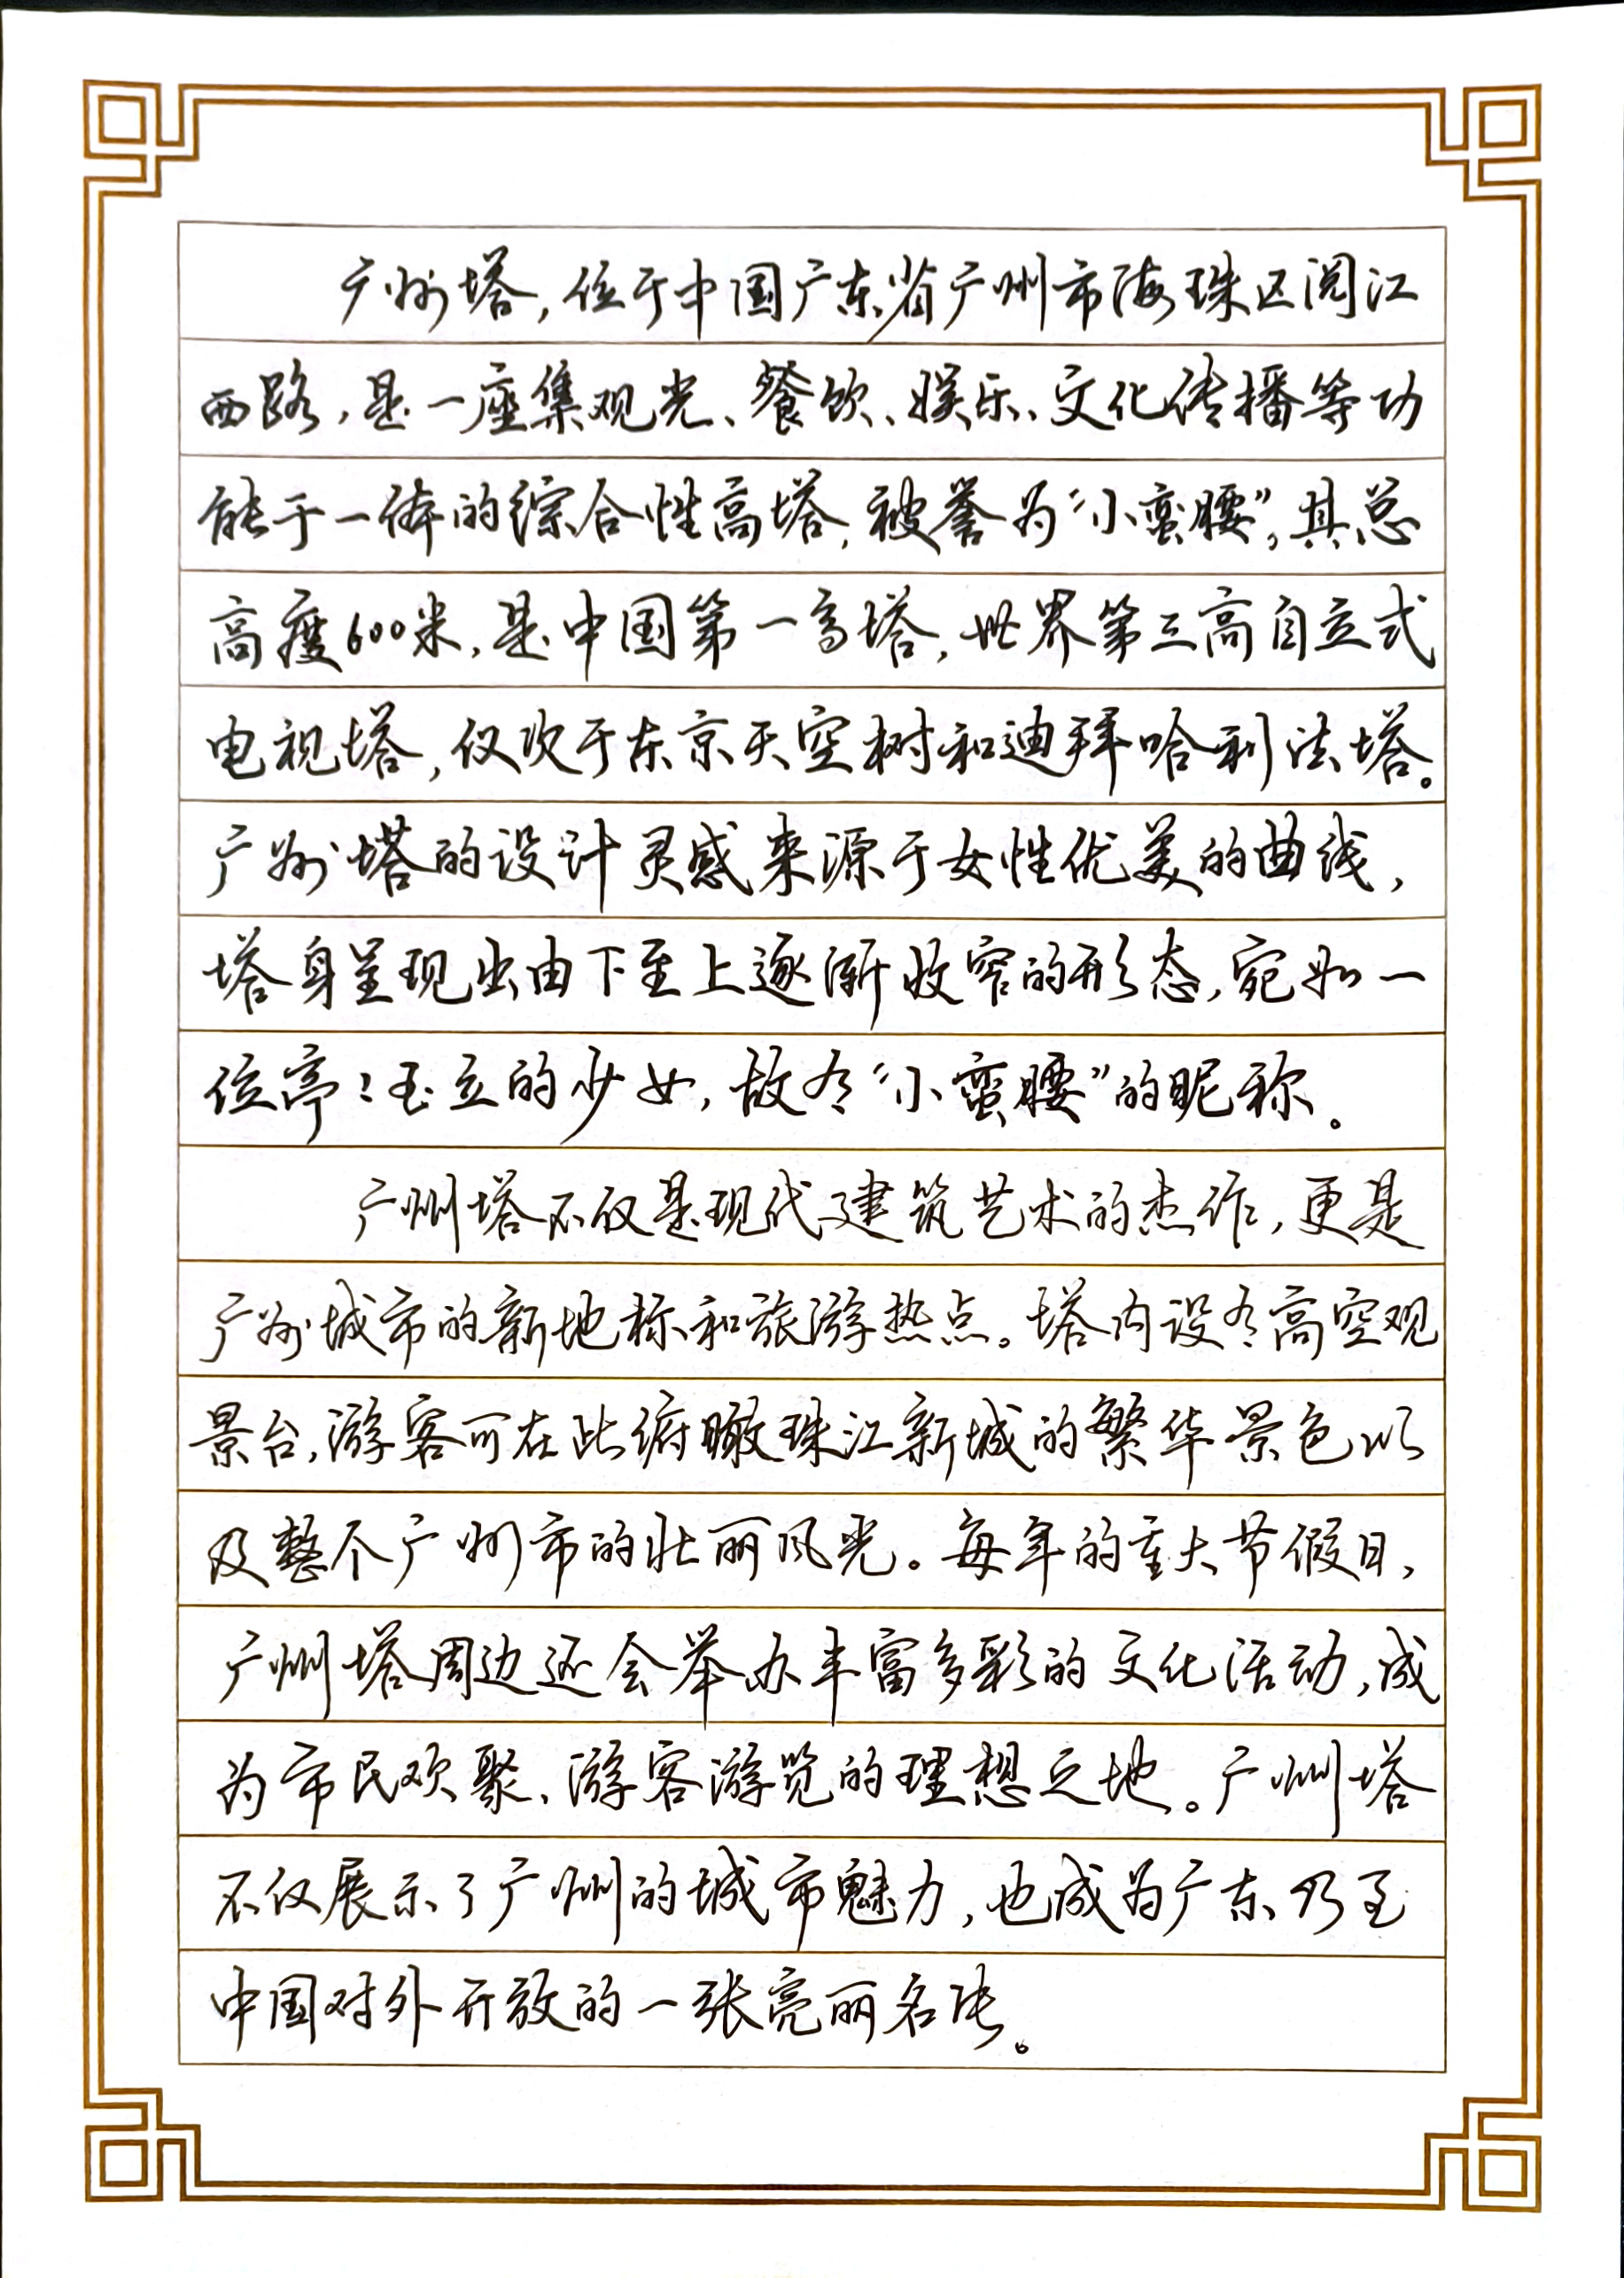 广州塔，位于中国广东省广州市海珠区阅江
西路，是一座集观光、餐饮、娱乐、文化传播等功
能于一体的综合性高塔，被誉为“小蛮腰”，其总
高度600米，是中国第一高塔，世界第三高自立式
电视塔，仅次于东京天空树和迪拜哈利法塔。
广州塔的设计灵感来源于女性优美的曲线，
塔身呈现出由下至上逐渐收窄的形态，宛如一
位亭亭玉立的少女，故有“小蛮腰”的昵称。
广州塔不仅是现代建筑艺术的杰作，更是
广州城市的新地标和旅游热点。塔内设有高空观
景台，游客可在此俯瞰珠江新城的繁华景色以
及整个广州市的壮丽风光。每年的重大节假日，
广州塔周边还会举办丰富多彩的文化活动，成
为市民欢聚、游客游览的理想之地。广州塔
不仅展示了广州的城市魅力，也成为广东乃至
中国对外开放的一张亮丽名片。